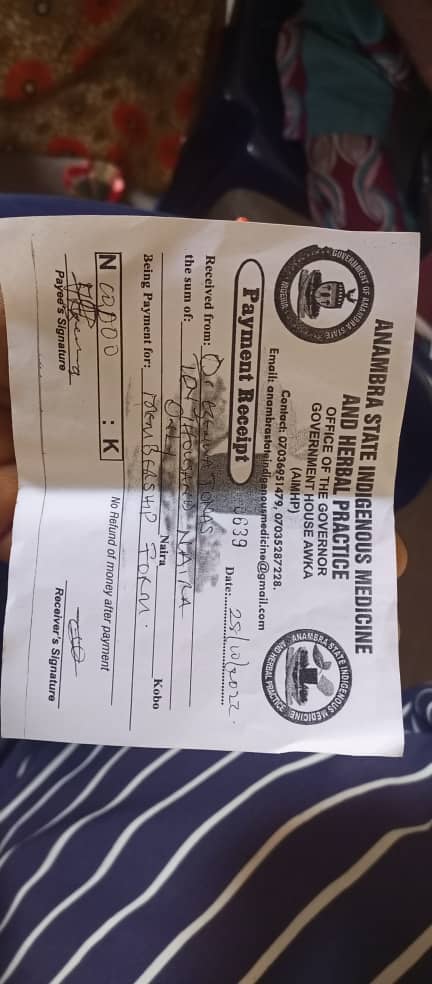 ANAMBRA STATE INDIGENOUS MEDICINE
AND HERBAL PRACTICE
OFFICE OF THE GOVERNOR
GOVERNMENT HOUSE AWKA
(AIMHP)
Contact: 07036951479, 07035287228.
Email: anambrastateindigenousmedicine@gmail.com
GOVERNMENT OF ANAMBRA STATE
NIGERIA
ANAMBRA STATE INDIGENOUS MEDICINE
AND HERBAL PRACTICE
Payment Receipt
0639
Date: 25/10/2022.
Received from: Dr JONAS
the sum of: TEN THOUSAND NAIRA
ONLY Naira Kobo
Being Payment for: MEMBERSHIP FORM.
N : K
No Refund of money after payment
Payee's Signature
Receiver's Signature